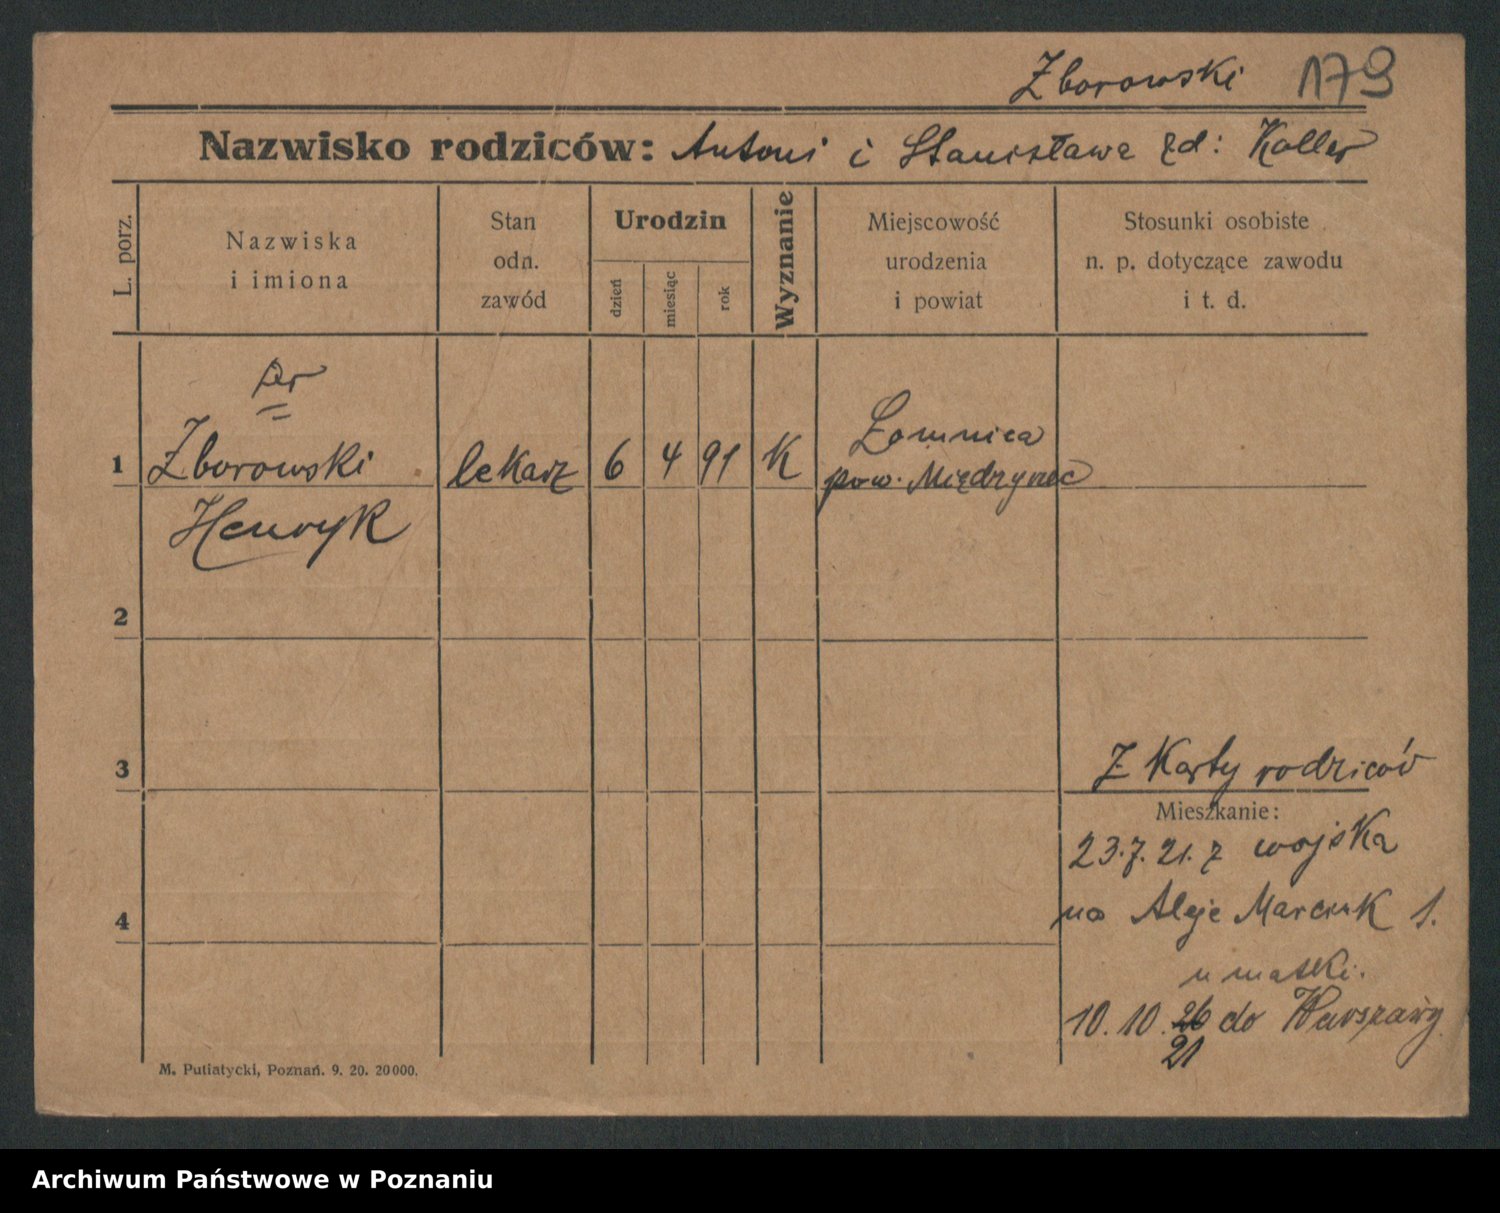 Zborowski 179
Nazwisko rodziców: Antoni i Stanisława zd: Koller
L. porz.
Nazwiska
i imiona
Stan
odn.
zawód
Urodzin
dzień
miesiąc
rok
Wyznanie
Miejscowość
urodzenia
i powiat
Stosunki osobiste
n. p. dotyczące zawodu
i t. d.
Dr
1 Zborowski lekarz 6 4 91 K Łomnica
pow. Międzyrzec
Henryk
2
3
Z Karty rodziców
Mieszkanie:
23.7.21. z wojska
na Aleje Marcink 1.
4
u matki.
10.10.26 do Warszawy
21
M. Putiatycki, Poznań. 9. 20. 20000.
Archiwum Państwowe w Poznaniu